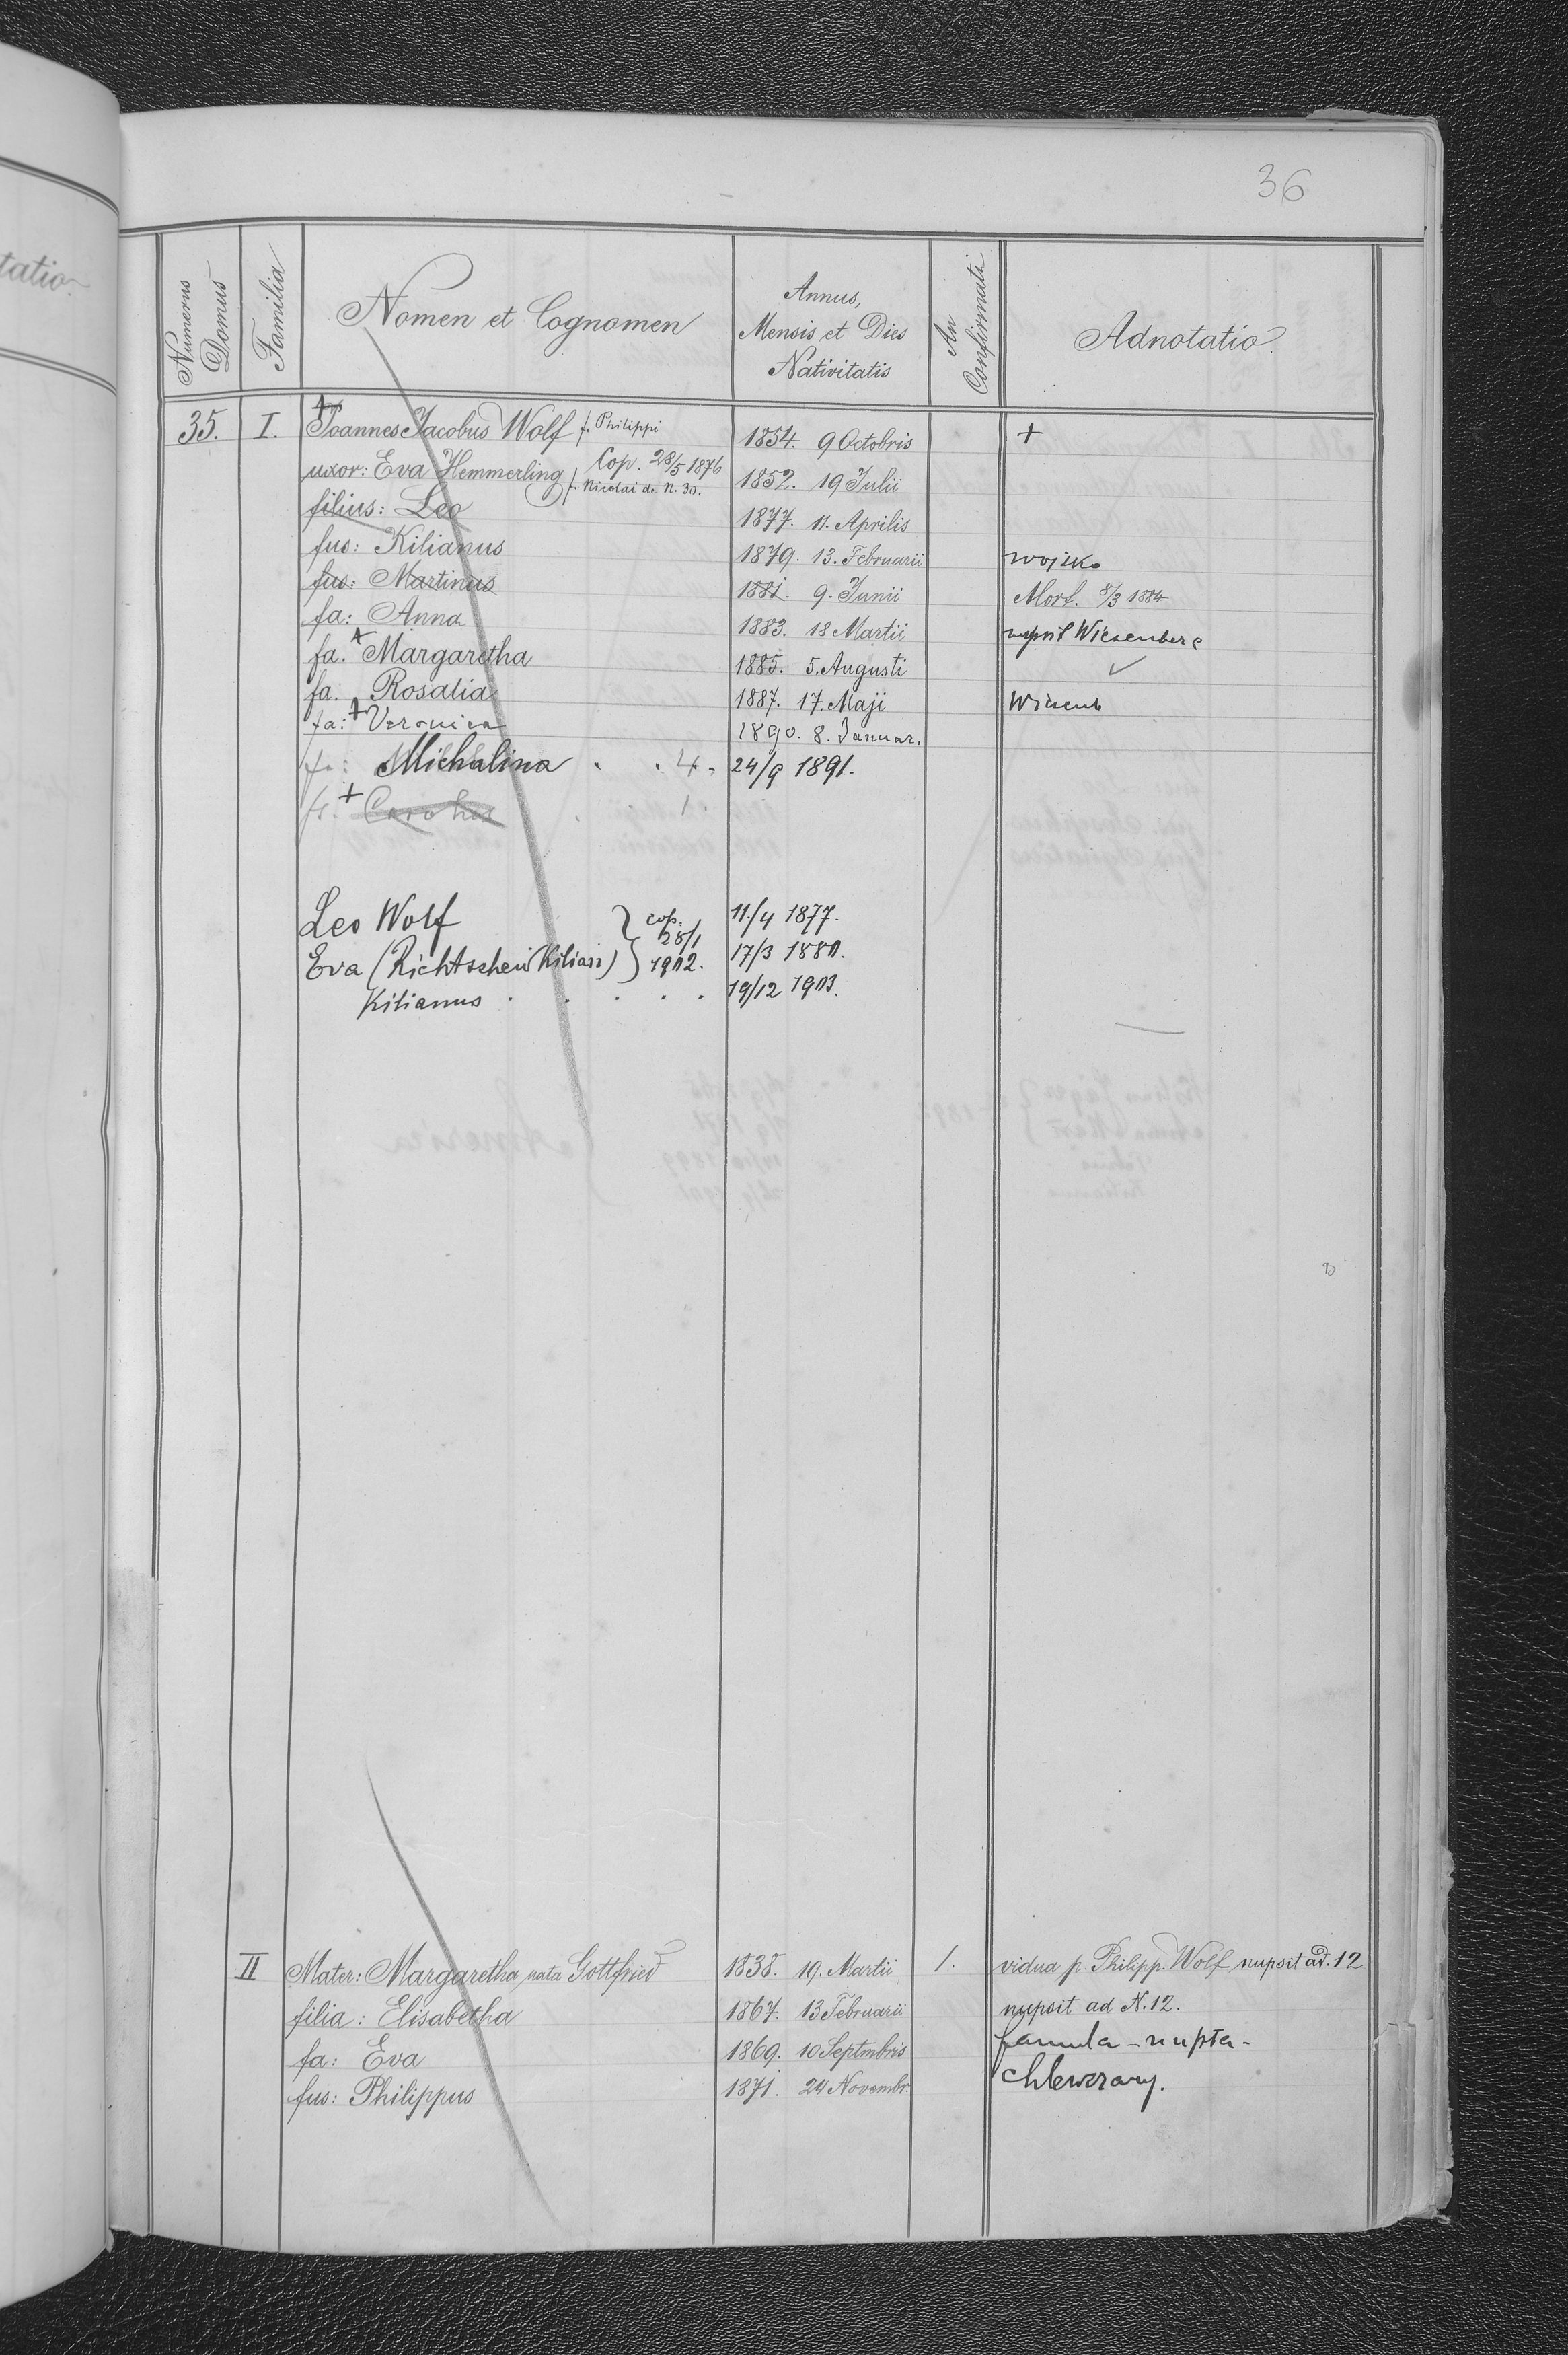 36
tatio
Numerus Domus
Familia
Nomen et Cognomen
Annus, Mensis et Dies Nativitatis
An Confirmati
Adnotatio.
35. I. + Joannes Jacobus Wolf f. Philippi 1854. 9 Octobris +
uxor: Eva Hemmerling Cop. 28/5 1876 f. Nicolai de N. 30. 1852. 19 Julii
filius: Leo 1877. 11. Aprilis
fus: Kilianus 1879. 13. Februarii wojsko
fus: Martinus 1881. 9. Junii Mort. 8/3 1884
fa: Anna 1883. 18 Martii nupsit Wiesenberg
fa. + Margaretha 1885. 5. Augusti ✓
fa. Rosalia 1887. 17. Maji Wiesenb
fa: + Veronica 1890. 8. Januar.
fa: Michalina . . 4. 24/9 1891.
fs. +
Leo Wolf } cop. 28/1 1902. 11/4 1877.
Eva (Richtscheid Kilian) 17/3 1880.
Kilianus . . . . . 19/12 1903.
II Mater: Margaretha nata Gottfried 1838. 19. Martii 1. vidua p. Philipp. Wolf nupsit ad. 12
filia: Elisabetha 1867. 13 Februarii nupsit ad N. 12.
fa: Eva 1869. 10 Septmbris famula - nupta -
fus: Philippus 1871. 24 Novembr. Chlewczany.